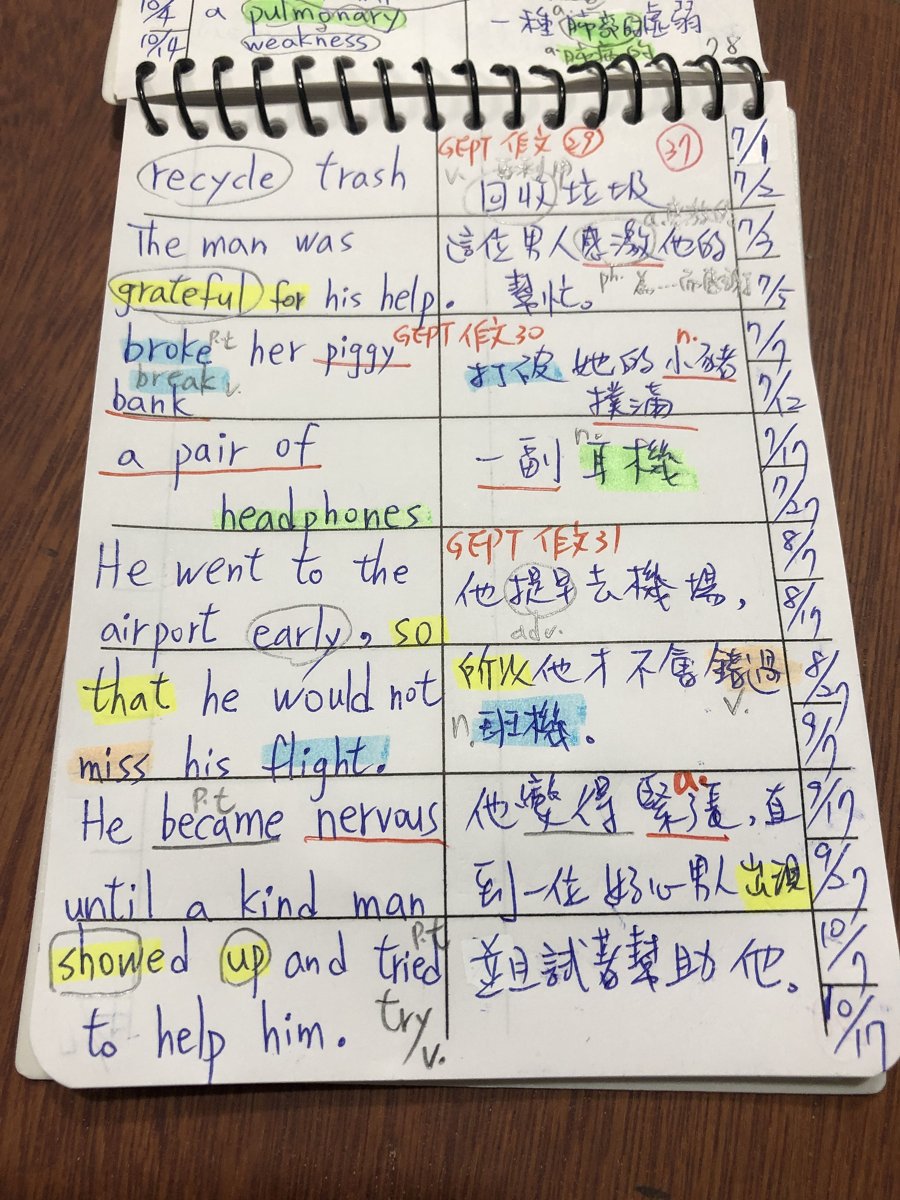 10/4
10/14
a pulmonary
weakness
一種肺部的虛弱
a. 肺病的
28
GEPT 作文 29
37
recycle trash
v. 再利用
回收垃圾
7/1
7/2
The man was
grateful for his help.
這位男人感激他的
幫忙。
7/3
7/5
broke p.t her piggy
break v.
bank
GEPT 作文30
n.
打破 她的 小豬
撲滿
7/7
7/12
a pair of
headphones
n.
一副 耳機
7/17
7/27
He went to the
airport early, so
that he would not
miss his flight.
GEPT 作文31
他提早去機場,
adv.
所以他才不會錯過
v.
n. 班機。
8/7
8/17
8/27
9/7
p.t
He became nervous
until a kind man
showed up and tried
p.t
to help him. try
v.
a.
他變得 緊張,直
到一位 好心男人出現
並且試著幫助 他。
9/17
9/27
10/7
10/17